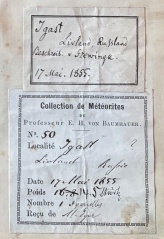 Igast
Livland, Russland
17 Mai. 1855.
Collection de Météorites
DE
Professeur E. H. VON BAUMHAUER.
No. 50
Localité Igast ?
Livland Russie
Date 17 Mai 1855
Poids
Nombre 1
Reçu de